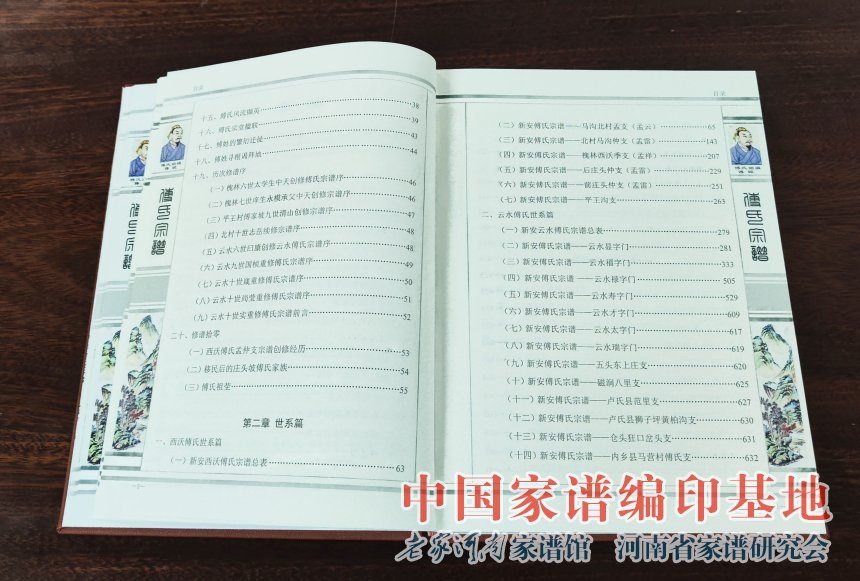 目录
十五、傅氏风流撷英 38
十六、傅氏宗堂楹联 39
十七、傅姓的繁衍迁徙 43
十八、傅姓寻根谒拜地 44
十九、历次修谱序
(一)槐林六世太学生中天创修傅氏宗谱序 46
(二)槐林七世庠生永模承父中天创修宗谱序 46
(三)平王村傅家坡九世渭山创修宗谱序 47
(四)北村十世志岳续修宗谱序 48
(五)云水六世曰康创修云水傅氏宗谱序 48
(六)云水九世国桢重修傅氏宗谱序 49
(七)云水十世嵐重修傅氏宗谱序 50
(八)云水十世尚莹重修傅氏宗谱序 51
(九)云水十世实重修傅氏宗谱前言 52
二十、修谱拾零
(一)西沃傅氏孟仲支宗谱创修经历 53
(二)移民后的庄头坡傅氏家族 54
(三)傅氏祖茔 55
第二章 世系篇
一、西沃傅氏世系篇
(一)新安西沃傅氏宗谱总表 63
目录
(二)新安傅氏宗谱——马沟北村孟支(孟云) 65
(三)新安傅氏宗谱——北村马沟仲支(孟雷) 143
(四)新安傅氏宗谱——槐林西沃季支(孟祥) 207
(五)新安傅氏宗谱——后庄头仲支(孟雷) 229
(六)新安傅氏宗谱——前庄头仲支(孟雷) 251
(七)新安傅氏宗谱——平王沟支 263
二、云水傅氏世系篇
(一)新安云水傅氏宗谱总表 279
(二)新安傅氏宗谱——云水显字门 281
(三)新安傅氏宗谱——云水福字门 333
(四)新安傅氏宗谱——云水禄字门 505
(五)新安傅氏宗谱——云水寿字门 529
(六)新安傅氏宗谱——云水才字门 609
(七)新安傅氏宗谱——云水太字门 617
(八)新安傅氏宗谱——云水瑞字门 619
(九)新安傅氏宗谱——五头东上庄支 620
(十)新安傅氏宗谱——磁涧八里支 625
(十一)新安傅氏宗谱——卢氏县范里支 627
(十二)新安傅氏宗谱——卢氏县狮子坪黄柏沟支 630
(十三)新安傅氏宗谱——仓头狂口岔头支 631
(十四)新安傅氏宗谱——内乡县马营村傅氏支 632
傅氏宗譜
傅氏宗譜
傅氏宗譜
中国家谱编印基地
老家河南家谱馆 河南省家谱研究会